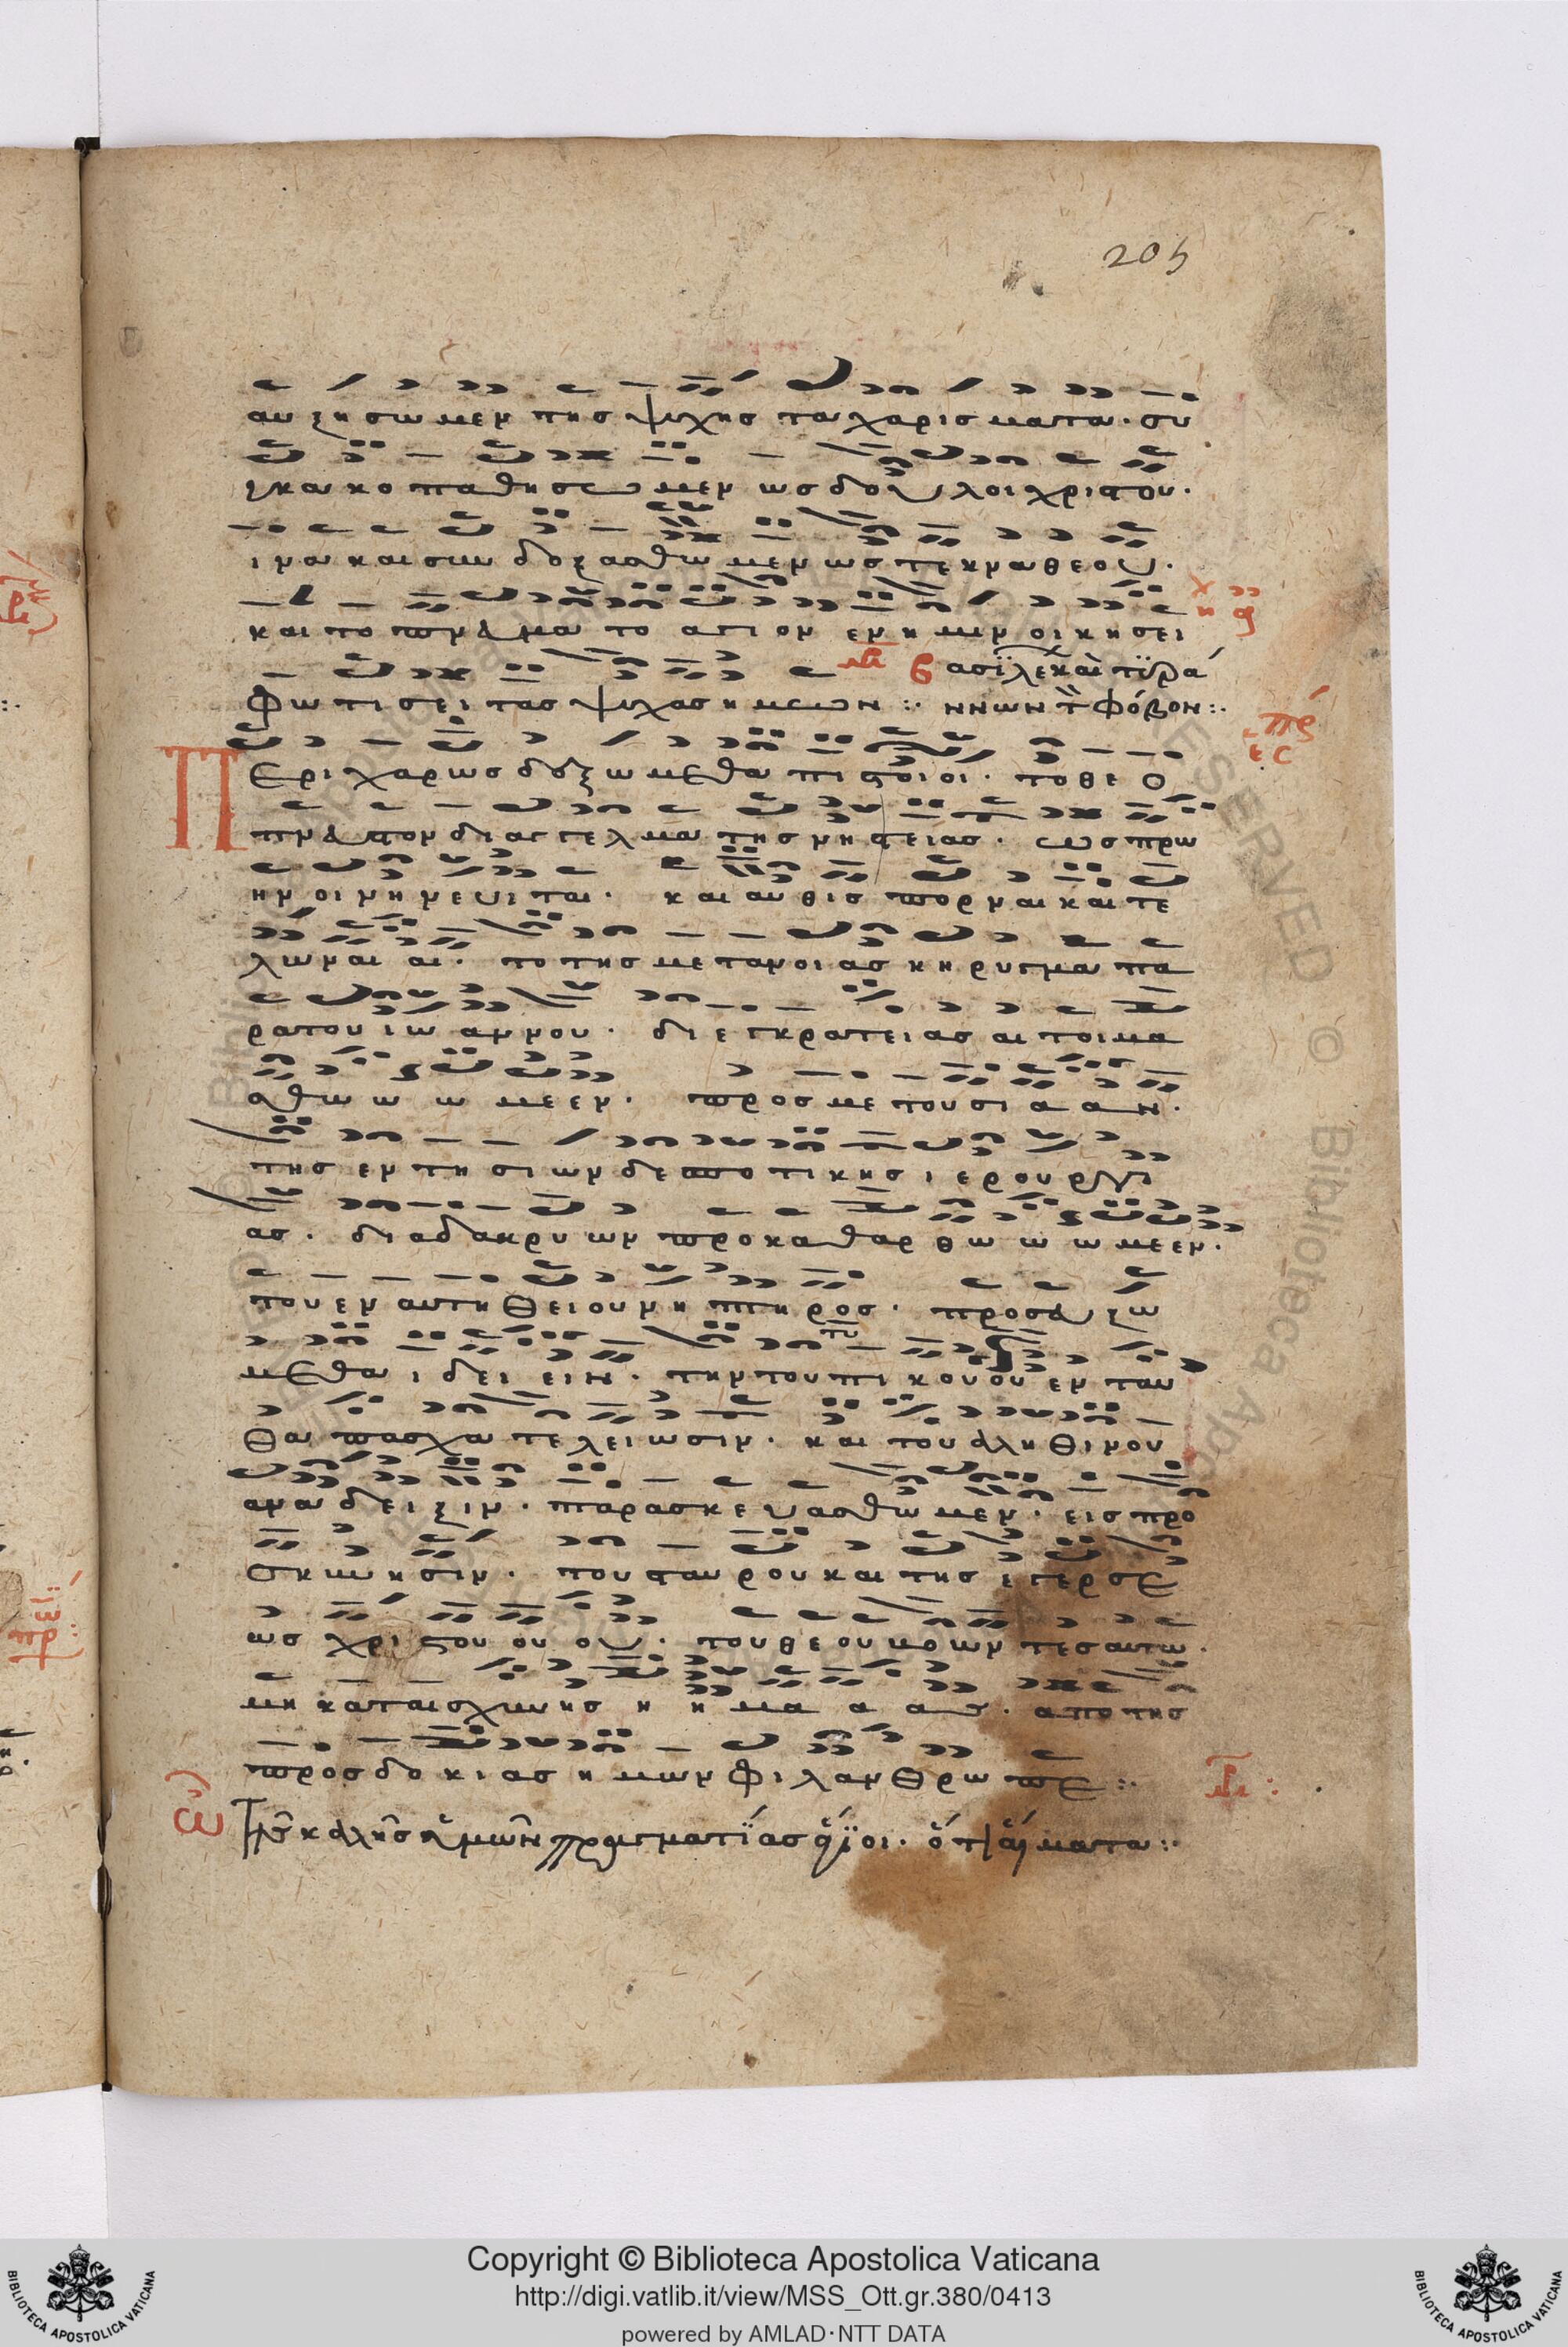 205
αυ ξη σω μεν της ψυχης τα χαρισ ματα · συ
γκα κο παθησω μεν ως δου λοι χριστου ·
ι να και συν δο ξασθω μεν ως τεκνα θεου ·
και το πνευμα το αγι ον εν η μιν οικησει
φω τι σει τας ψυχας ημων :·
Περιχαρως δεξω μεθα πι στοιοι · το θε ο
πνευστον διαγγελμα της νηστειας · ως πρω
ην οι νη νε υι ται · και αυθις πορναι και τε
λωναι αι · το της μετανοι ας κηρυγμα πα
ρα του ιω αννου · δι εγκρατειας ετοιμα
σθω ω ω με εν · προς μετουσι α α ν ·
της εν τη σι ων δεσπο τικης ι ερουργι
ας · δια δακρυ ων προκαθαρ θω ω ω με εν ·
του εν αυτη θειου νι πτηρος · προσευξω
μεθα ι δει ειν · την του τυπι κου ου εν ταυ
θα πασχα τε λειωσιν · και του αλη θινου
ανα δειξιν · παρασκε υασθω μεν · εις προ
σκυνησιν · του σταυρου και της εγερσε
ως χρι στου ου ου · του θε ου
μη καταισχυνης η η μα α ας · απο της
προσδο κιας η μων φιλανθρωπε :·
Copyright © Biblioteca Apostolica Vaticana
http://digi.vatlib.it/view/MSS_Ott.gr.380/0413
powered by AMLAD·NTT DATA
BIBLIOTECA APOSTOLICA VATICANA
BIBLIOTECA APOSTOLICA VATICANA